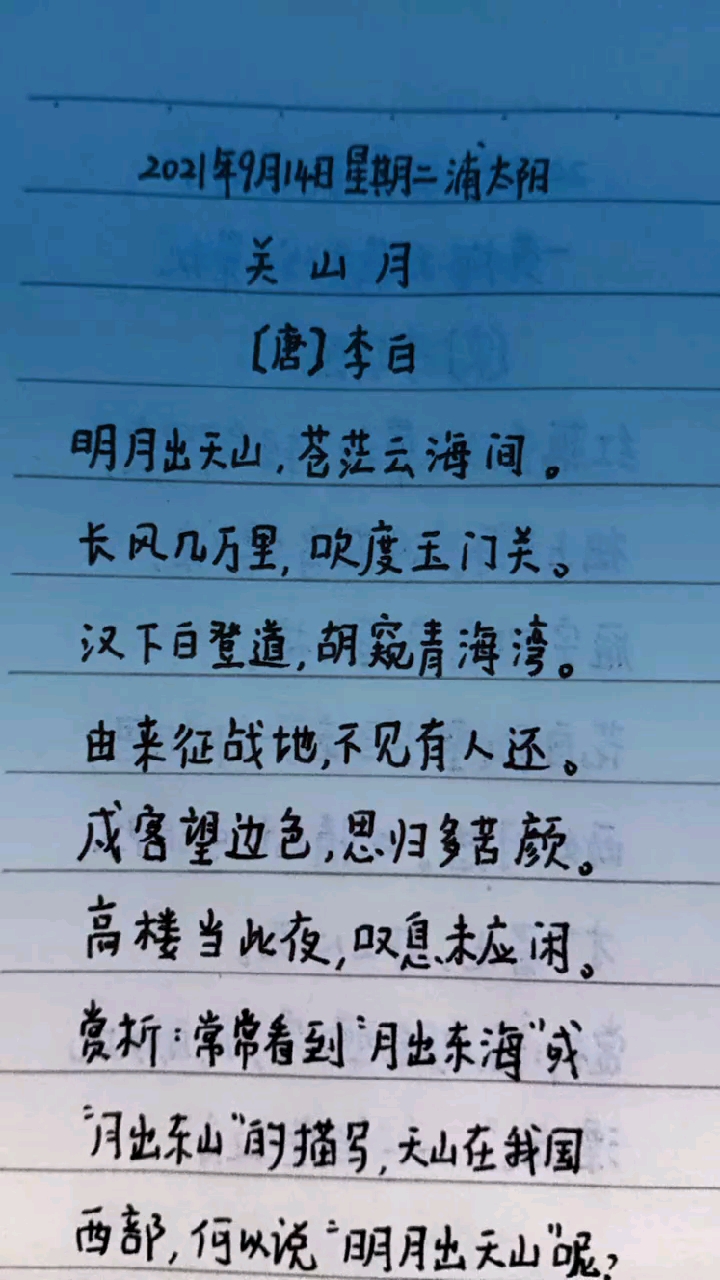 2021年9月14日星期二浦太阳
关山月
〔唐〕李白
明月出天山,苍茫云海间。
长风几万里,吹度玉门关。
汉下白登道,胡窥青海湾。
由来征战地,不见有人还。
戍客望边色,思归多苦颜。
高楼当此夜,叹息未应闲。
赏析:常常看到“月出东海”或
“月出东山”的描写,天山在我国
西部,何以说“明月出天山”呢?